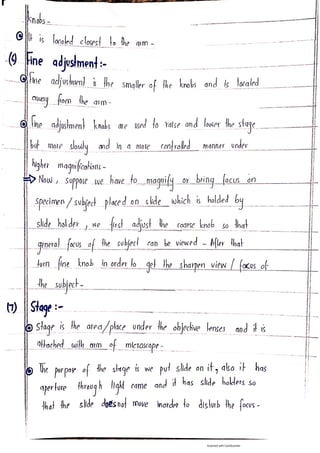 knobs -
It is located closest to the arm -
(6) Fine adjustment :-
Fine adjustment is the smaller of the knobs and is located
away from the arm -
Fine adjustment knobs are used to raise and lower the stage
but more slowly and in a more controlled manner under
higher magnifications -
⇒ Now, suppose we have to magnify or bring focus on
specimen / subject placed on slide which is holded by
slide holder, we first adjust the coarse knob so that
general focus of the subject can be viewed - After that
turn fine knob in order to get the sharpen view / focus of
the subject -
(7) Stage :-
Stage is the area/place under the objective lenses and it is
attached with arm of microscope -
The purpose of the stage is we put slide on it, also it has
aperture through light came and it has slide holders so
that the slide does not move inorder to disturb the focus -
Scanned with CamScanner